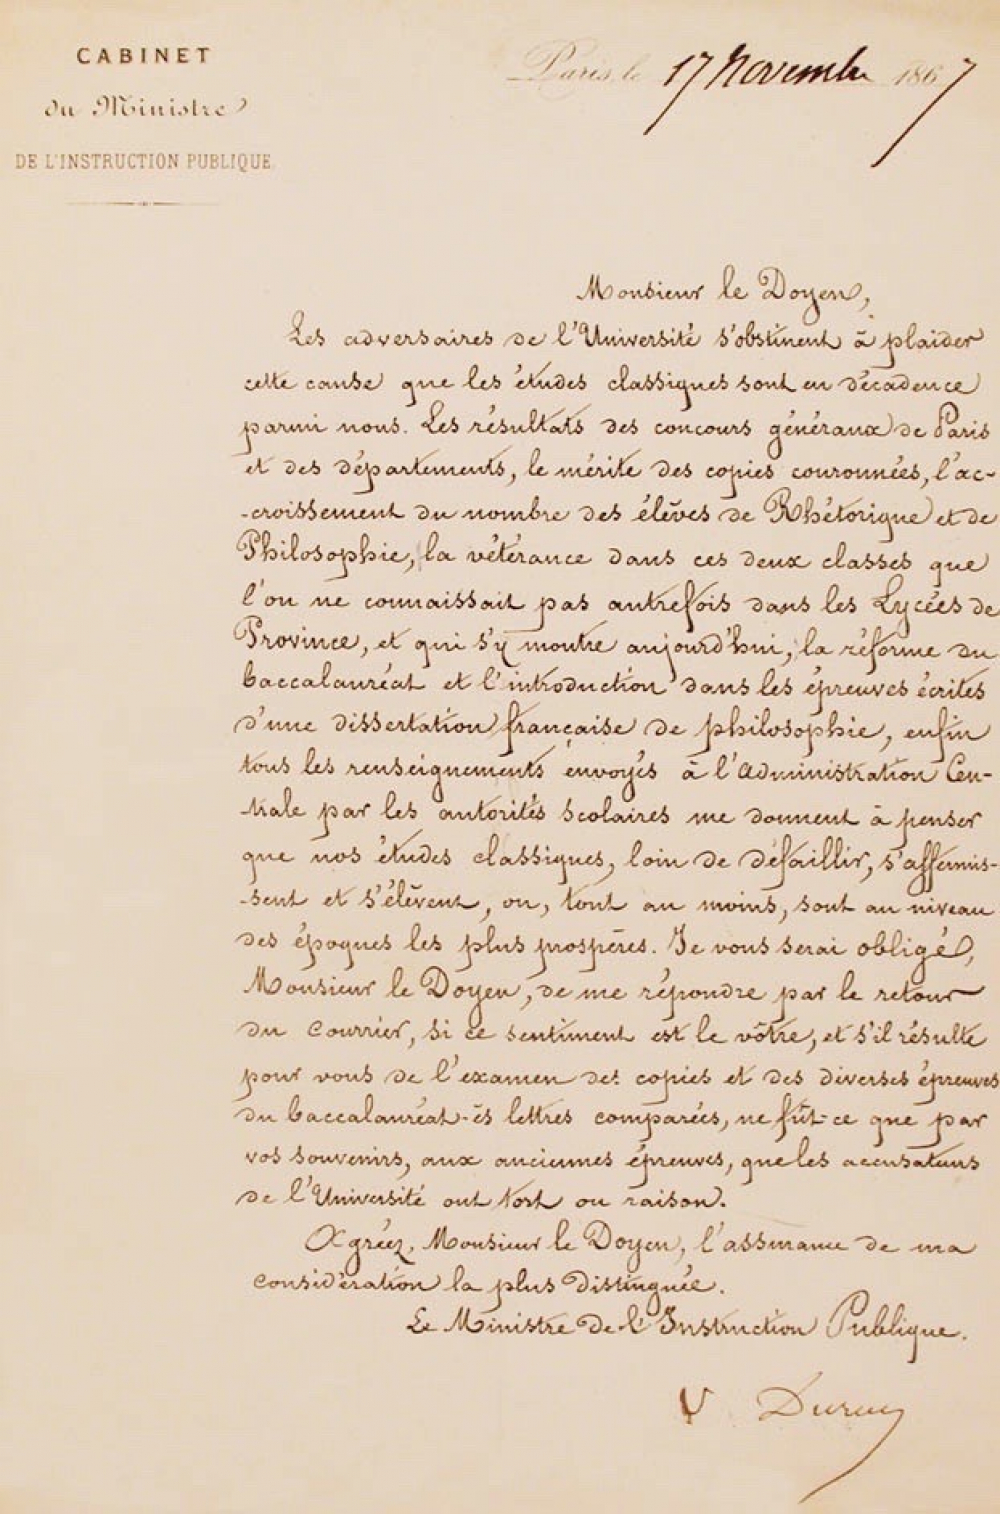 CABINET
du Ministre
DE L'INSTRUCTION PUBLIQUE.
Paris, le 17 Novembre 1867
Monsieur le Doyen,
Les adversaires de l'Université s'obstinent à plaider
cette cause que les études classiques sont en décadence
parmi nous. Les résultats des concours généraux de Paris
et des départements, le mérite des copies couronnées, l'ac-
-croissement du nombre des élèves de Rhétorique et de
Philosophie, la vétérance dans ces deux classes que
l'on ne connaissait pas autrefois dans les Lycées de
Province, et qui s'y montre aujourd'hui, la réforme du
baccalauréat et l'introduction dans les épreuves écrites
d'une dissertation française de philosophie, enfin
tous les renseignements envoyés à l'Administration Cen-
-trale par les autorités scolaires me donnent à penser
que nos études classiques, loin de défaillir, s'affermis-
-sent et s'élèvent, ou, tout au moins, sont au niveau
des époques les plus prospères. Je vous serai obligé,
Monsieur le Doyen, de me répondre par le retour
du courrier, si ce sentiment est le vôtre, et s'il résulte
pour vous de l'examen des copies et des diverses épreuves
du baccalauréat-ès lettres comparées, ne fût-ce que par
vos souvenirs, aux anciennes épreuves, que les accusateurs
de l'Université ont tort ou raison.
Agréez, Monsieur le Doyen, l'assurance de ma
considération la plus distinguée.
Le Ministre de l'Instruction Publique.
V Duruy